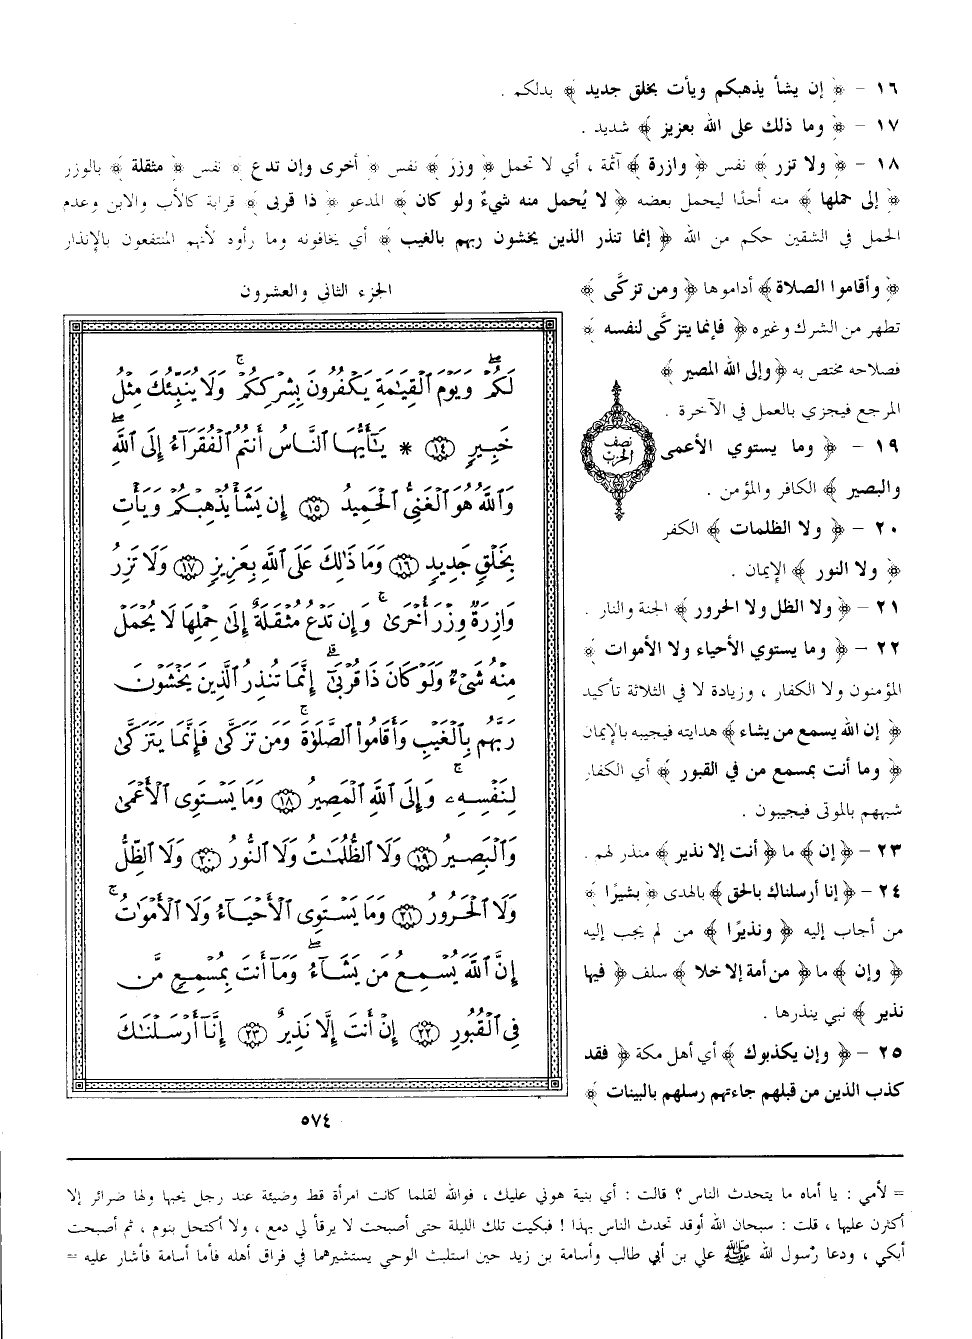 ١٦ - ﴿ إن يشأ يذهبكم ويأت بخلق جديد ﴾ بدلكم .
١٧ - ﴿ وما ذلك على الله بعزيز ﴾ شديد .
١٨ - ﴿ ولا تزر ﴾ نفس ﴿ وازرة ﴾ آثمة ، أي لا تحمل ﴿ وزر ﴾ نفس ﴿ أخرى وإن تدع ﴾ نفس ﴿ مثقلة ﴾ بالوزر
﴿ إلى حملها ﴾ منه أحدًا ليحمل بعضه ﴿ لا يُحمل منه شيءٌ ولو كان ﴾ المدعو ﴿ ذا قربى ﴾ قرابة كالأب والابن وعدم
الحمل في الشقين حكم من الله ﴿ إنما تنذر الذين يخشون ربهم بالغيب ﴾ أي يخافونه وما رأوه لأنهم المنتفعون بالإنذار
﴿ وأقاموا الصلاة ﴾ أداموها ﴿ ومن تزكَّى ﴾
تطهر من الشرك وغيره ﴿ فإنما يتزكَّى لنفسه ﴾
فصلاحه مختص به ﴿ وإلى الله المصير ﴾
المرجع فيجزي بالعمل في الآخرة .
١٩ - ﴿ وما يستوي الأعمى
والبصير ﴾ الكافر والمؤمن .
٢٠ - ﴿ ولا الظلمات ﴾ الكفر
﴿ ولا النور ﴾ الإيمان .
٢١ - ﴿ ولا الظل ولا الحرور ﴾ الجنة والنار .
٢٢ - ﴿ وما يستوي الأحياء ولا الأموات ﴾
المؤمنون ولا الكفار ، وزيادة لا في الثلاثة تأكيد
﴿ إن الله يسمع من يشاء ﴾ هدايته فيجيبه بالإيمان
﴿ وما أنت بمسمع من في القبور ﴾ أي الكفار
شبههم بالموتى فيجيبون .
٢٣ - ﴿ إن ﴾ ما ﴿ أنت إلا نذير ﴾ منذر لهم .
٢٤ - ﴿ إنا أرسلناك بالحق ﴾ بالهدى ﴿ بشيرًا ﴾
من أجاب إليه ﴿ ونذيرًا ﴾ من لم يجب إليه
﴿ وإن ﴾ ما ﴿ من أمة إلا خلا ﴾ سلف ﴿ فيها
نذير ﴾ نبي ينذرها .
٢٥ - ﴿ وإن يكذبوك ﴾ أي أهل مكة ﴿ فقد
كذب الذين من قبلهم جاءتهم رسلهم بالبينات ﴾
نصف
الحزب
الجزء الثاني والعشرون
لَكُمْ ۖ وَيَوْمَ ٱلْقِيَٰمَةِ يَكْفُرُونَ بِشِرْكِكُمْ ۚ وَلَا يُنَبِّئُكَ مِثْلُ
خَبِيرٍ ١٤ * يَٰٓأَيُّهَا ٱلنَّاسُ أَنتُمُ ٱلْفُقَرَآءُ إِلَى ٱللَّهِ ۖ
وَٱللَّهُ هُوَ ٱلْغَنِىُّ ٱلْحَمِيدُ ١٥ إِن يَشَأْ يُذْهِبْكُمْ وَيَأْتِ
بِخَلْقٍ جَدِيدٍ ١٦ وَمَا ذَٰلِكَ عَلَى ٱللَّهِ بِعَزِيزٍ ١٧ وَلَا تَزِرُ
وَازِرَةٌ وِزْرَ أُخْرَىٰ ۚ وَإِن تَدْعُ مُثْقَلَةٌ إِلَىٰ حِمْلِهَا لَا يُحْمَلْ
مِنْهُ شَىْءٌ وَلَوْ كَانَ ذَا قُرْبَىٰٓ ۗ إِنَّمَا تُنذِرُ ٱلَّذِينَ يَخْشَوْنَ
رَبَّهُم بِٱلْغَيْبِ وَأَقَامُوا۟ ٱلصَّلَوٰةَ ۚ وَمَن تَزَكَّىٰ فَإِنَّمَا يَتَزَكَّىٰ
لِنَفْسِهِۦ ۚ وَإِلَى ٱللَّهِ ٱلْمَصِيرُ ١٨ وَمَا يَسْتَوِى ٱلْأَعْمَىٰ
وَٱلْبَصِيرُ ١٩ وَلَا ٱلظُّلُمَٰتُ وَلَا ٱلنُّورُ ٢٠ وَلَا ٱلظِّلُّ
وَلَا ٱلْحَرُورُ ٢١ وَمَا يَسْتَوِى ٱلْأَحْيَآءُ وَلَا ٱلْأَمْوَٰتُ ۚ
إِنَّ ٱللَّهَ يُسْمِعُ مَن يَشَآءُ ۖ وَمَآ أَنتَ بِمُسْمِعٍ مَّن
فِى ٱلْقُبُورِ ٢٢ إِنْ أَنتَ إِلَّا نَذِيرٌ ٢٣ إِنَّآ أَرْسَلْنَٰكَ
٥٧٤
= لأمي : يا أماه ما يتحدث الناس ؟ قالت : أي بنية هوني عليك ، فوالله لقلما كانت امرأة قط وضيئة عند رجل يحبها ولها ضرائر إلا
أكثرن عليها ، قلت : سبحان الله أوقد تحدث الناس بهذا ! فبكيت تلك الليلة حتى أصبحت لا يرقأ لي دمع ، ولا أكتحل بنوم ، ثم أصبحت
أبكي ، ودعا رسول الله ﷺ علي بن أبي طالب وأسامة بن زيد حين استلبث الوحي يستشيرهما في فراق أهله فأما أسامة فأشار عليه =